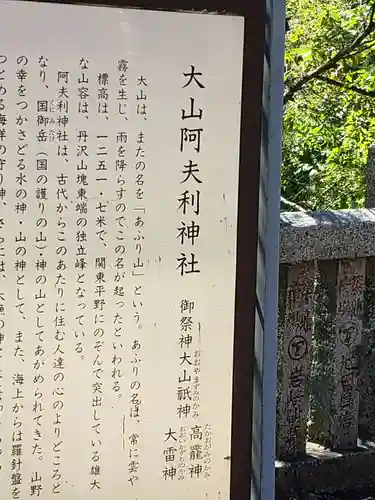 大山阿夫利神社
御祭神 大山祇神
おおやまずみのかみ
高龗神
たかおかみのかみ
大雷神
おおいかずちのかみ
大山は、またの名を「あふり山」という。あふりの名は、常に雲や
霧を生じ、雨を降らすのでこの名が起ったといわれる。
標高は、一二五一・七米で、関東平野にのぞんで突出している雄大
な山容は、丹沢山塊東端の独立峰となっている。
阿夫利神社は、古代からこのあたりに住む人達の心のよりどころと
なり、国御岳（国の護りの山）神の山としてあがめられてきた。山野
くにみたけ
の幸をつかさどる水の神・山の神として、また、海上からは羅針盤を
つとめる海洋の守り神、さらには、大漁の神として